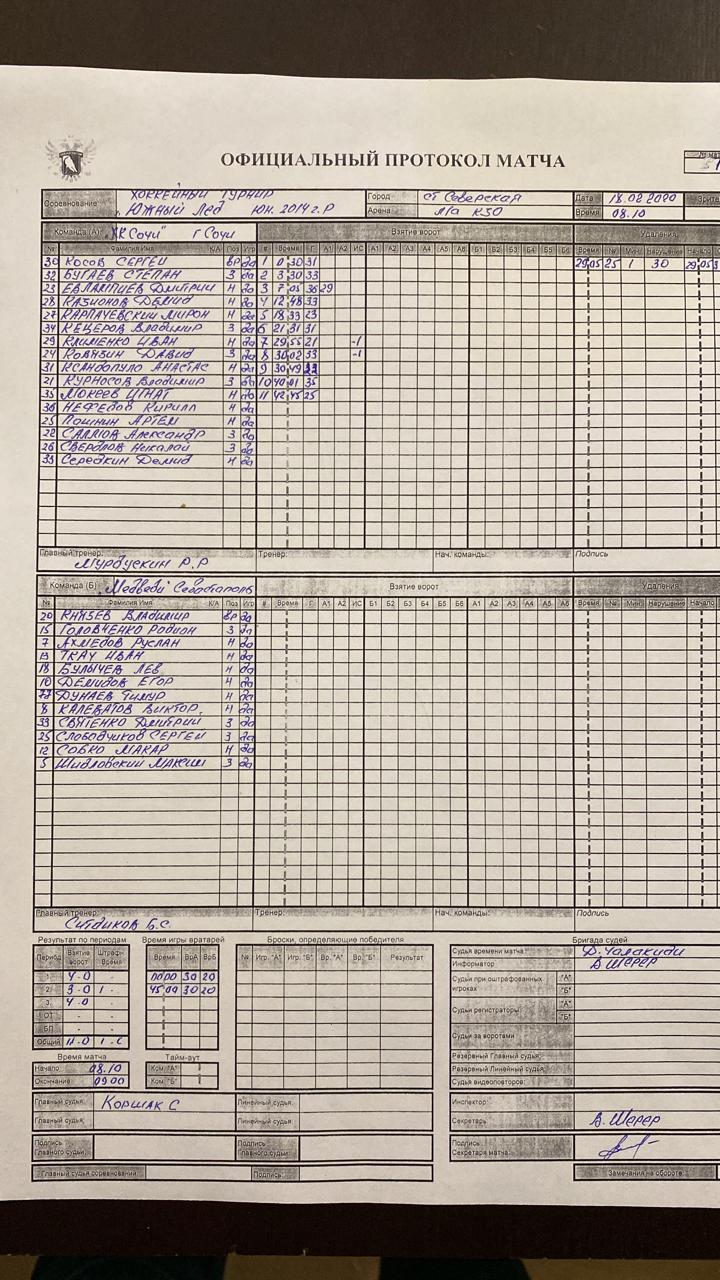 ОФИЦИАЛЬНЫЙ ПРОТОКОЛ МАТЧА
Соревнование: ХОККЕЙНЫЙ ТУРНИР Город ст Северская Дата 18.02.2020
Южный Лёд Юн. 2014 г.р Арена л/а К30 Время 08.10
Команда (А) "ХК Сочи" г Сочи Взятие ворот Удаления
№ Фамилия Имя К/А Поз Игр # Время Г А1 А2 ИС А1 А2 А3 А4 А5 А6 Б1 Б2 Б3 Б4 Б5 Б6 Время № Мин Нарушение Начало
30 КОСОВ СЕРГЕЙ Вр да 1 0 30 31 29 05 25 1 30 29 05
32 БУГАЕВ СТЕПАН З да 2 3 30 33
23 ЕВЛАМПИЕВ ДМИТРИЙ Н да 3 7 05 36 29
28 КАЗИОНОВ ДЕМИД Н да 4 12 48 33
27 КАРПАЧЕВСКИЙ МИРОН Н да 5 18 33 23
34 КЕЦЕРОВ Владимир З да 6 21 31 31
29 КЛИМЕНКО ИВАН Н да 7 29 55 21 -1
24 КОВЯЗИН ДАВИД З да 8 30 02 33 -1
31 КСАНДОПУЛО АНАСТАС Н да 9 30 49
21 КУРНОСОВ Владимир З да 10 40 01 35
35 МОКЕЕВ ИГНАТ Н да 11 42 45 25
36 НЕФЕДОВ КИРИЛЛ Н да
25 Пошнин АРТЕМ Н да
22 Александр З да
26 СВЕРДЛОВ Николай З да
33 Середкин Демид Н да
Главный тренер: Р.Р Тренер: Нач. команды: Подпись
Команда (Б) "Медведи Севастополь Взятие ворот Удаления
№ Фамилия Имя К/А Поз Игр # Время Г А1 А2 ИС Б1 Б2 Б3 Б4 Б5 Б6 А1 А2 А3 А4 А5 А6 Время № Мин Нарушение Начало
20 КНЯЗЕВ Владимир Вр да
15 ГОЛОВЧЕНКО РОДИОН З да
7 АХМЕДОВ РУСЛАН Н да
13 ТКАЧ ИВАН Н да
18 БУЛЫЧЕВ ЛЕВ Н да
10 ДЕМИДОВ ЕГОР Н да
77 ДУНАЕВ Тимур Н да
8 КАЛЕВАТОВ ВИКТОР. Н да
99 СВЯТЕНКО ДМИТРИЙ З да
25 СЛОБОДЧИКОВ СЕРГЕЙ З да
12 СОБКО МАКАР Н да
5 Шидловский МАКСИМ З да
Главный тренер: Ситдиков Б.С. Тренер: Нач. команды: Подпись
Результат по периодам Время игры вратарей Броски, определяющие победителя Бригада судей
Период Взятие ворот Штрафн. Время Время ВрА ВрБ № Игр. "А" Игр. "Б" Вр. "А" Вр. "Б" Результат
Судья времени матча
Информатор В Шерер
1 4-0 00 00 30 20
2 3 0 1 - 45 00 30 20
3 4-0
ОТ - -
БП - -
Общий 11-0
Судьи при оштрафованных игроках "А" "Б"
Судьи регистраторы "А" "Б"
Судьи за воротами
Резервный Главный судья
Резервный Линейный судья
Судья видеоповторов:
Время матча Тайм-аут
Начало 08.10 Ком. "А"
Окончание 09.00 Ком. "Б"
Главный судья: КОРШАК С Линейный судья: Инспектор:
Главный судья: Линейный судья: Секретарь В. Шерер
Подпись Главного судьи Подпись Главного судьи Подпись Секретаря матча:
Главный судья соревнований Подпись: Замечания на обороте: